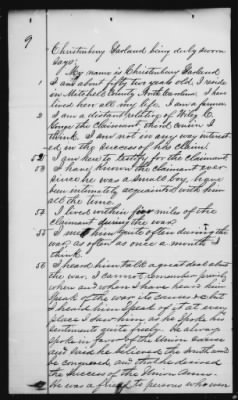 9
Christenbury Garland being duly sworn
says:
1 My name is Christenbury Garland
I am about fifty two years old, I reside
in Mitchell County North Carolina. I have
lived here all my life. I am a farmer
2 I am a distant relative of Wiley C.
the claimant third cousin I
think. I am not in any way interest
ed in the success of his claim.
52 I am here to testify for the claimant
53 I have known the claimant ever
since he was a small boy. I have
been intimately acquainted with him
all the time
54 I lived within four miles of the
claimant during the war
55 I met him quite often during the
war, as often as once a month I
think.
56 I heard him talk a great deal about
the war. I cannot remember precisely
when and where I have heard him
speak of the war its causes &c but
I heard him speak of it at every
place I saw him as he spoke his
sentiments quite freely. he always
spoke in favor of the Union cause
and said he believed the South would
be conquered, and that he desired
the success of the Union Army.
He was a friend to persons who were